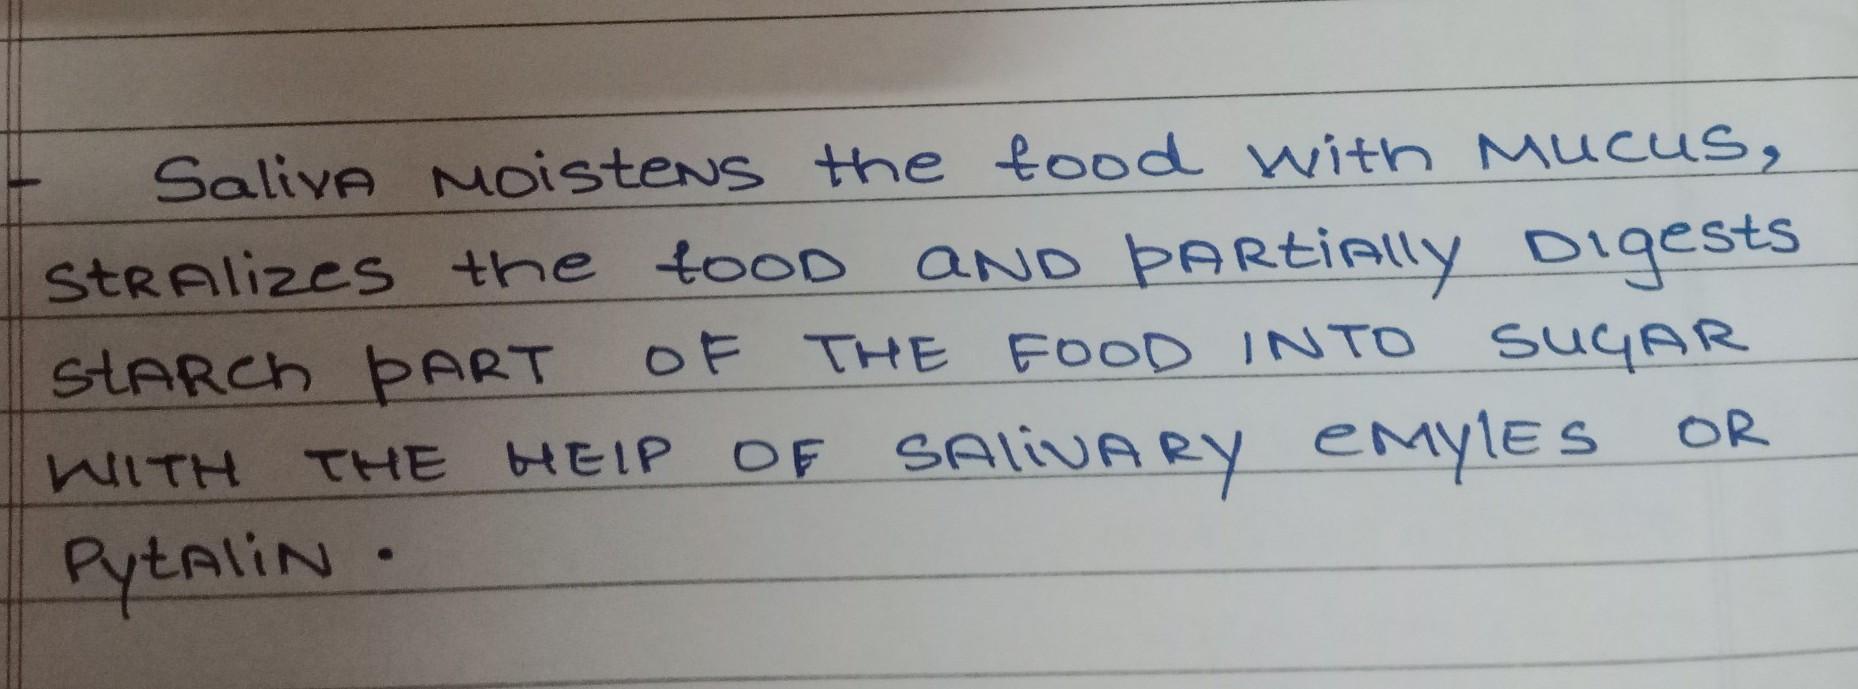 - SalivA MoisteNS the food with Mucus,
StRAlizes the fooD aND PARtiAlly DIgests
StARch PART OF THE FOOD INTO SUGAR
WITH THE HElP OF SAliVARy eMylES OR
PytAliN .